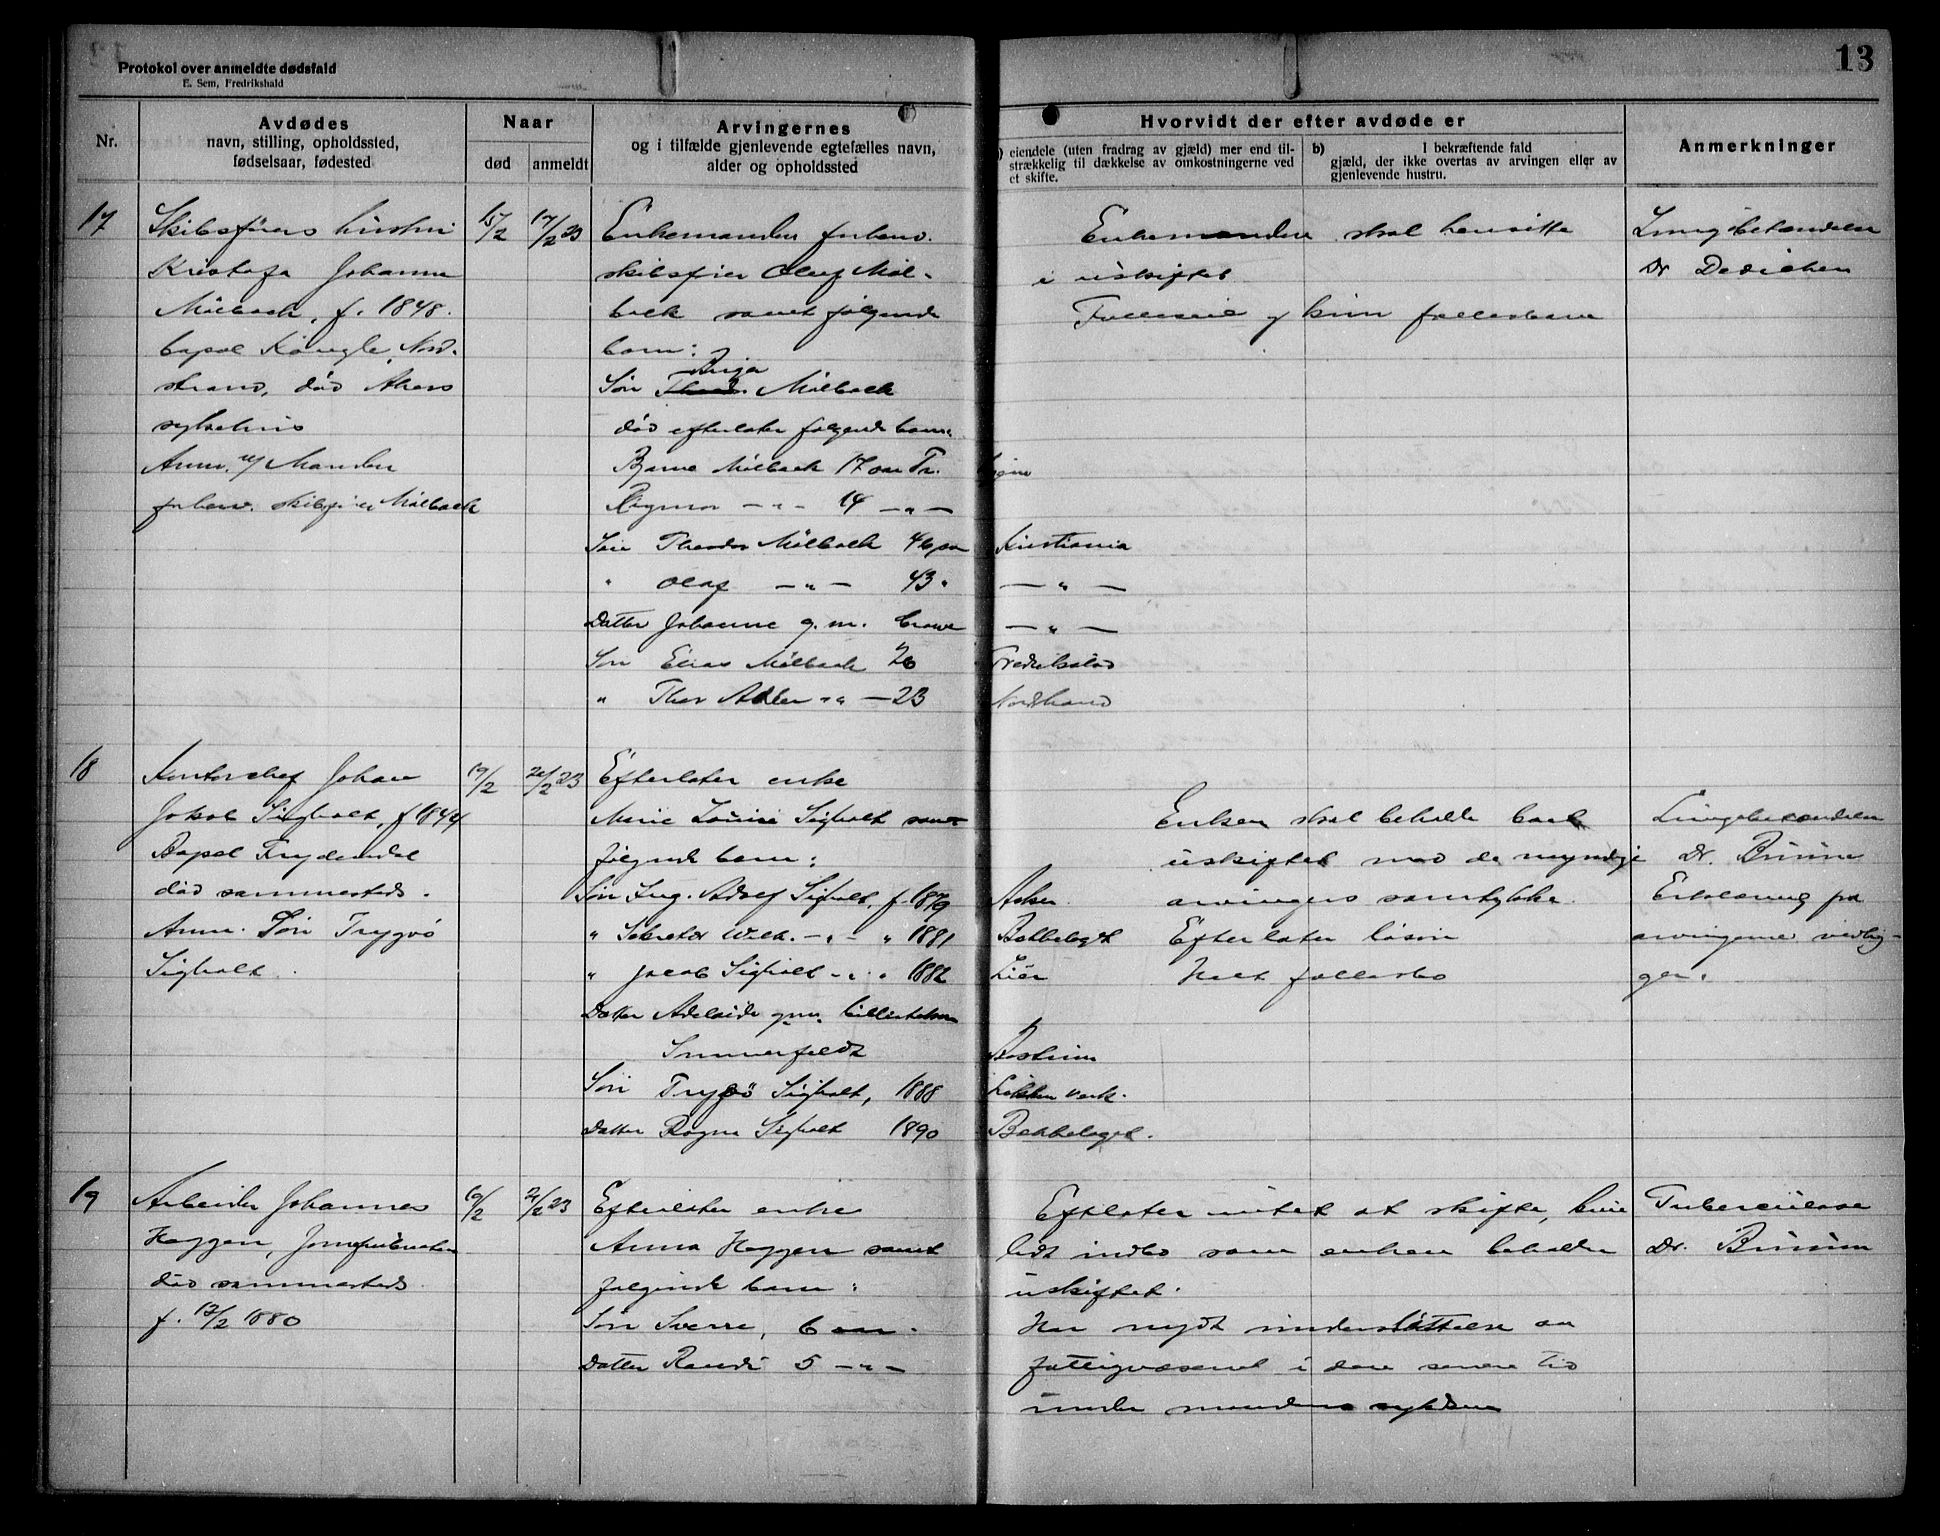 13
Protokol over anmeldte dødsfald
E. Sem, Fredrikshald
Nr.
Avdødes
navn, stilling, opholdssted,
fødselsaar, fødested
Naar
død
anmeldt
Arvingernes
og i tilfælde gjenlevende egtefælles navn,
alder og opholdssted
Hvorvidt der efter avdøde er
eiendele (uten fradrag av gjæld) mer end til-
strækkelig til dækkelse av omkostningerne ved
et skifte.
b) I bekræftende fald
gjæld, der ikke overtas av arvingen eller av
gjenlevende hustru.
Anmerkninger
17
Skibsførers hustru
Johanne
Mölback, f. 1848.
bopæl Nord-
strand, död Akers
sykehus
Anm. v/ Manden
forhenv. skibsfører Mölback
15/2
17/2 23
Enkemanden forhenv.
skibsfører Oluf Möl-
back samt følgende
barn:
Sön Mölback
död efterlater følgende barn.
Bjarne Mölback 17 aar
Ragnar — " — 14 — " —
Sön Theodor Mölback 46 aar Kristiania
" Olaf — " — 43 " — " —
Datter Johanne g. m. — " —
Sön Elias Mölback Fredrikstad
" Thor Adler " " — 23 Nordstrand
Enkemanden skal hensitte
i uskiftet
Fælleseie og kun fællesbarn
Lungebetændelse
Dr Dedichen
18
Kontorchef Johan
Jakob Sigholt, f 1844
Bopæl Frydendal
död sammesteds.
Anm. Sön Trygvö
Sigholt.
19/2
23
Efterlater enke
Marie Louise Sigholt samt
følgende barn:
Sön Ing. Adolf Sigholt, f. 1879 Asker
" Sekretær Wilh. — " — " 1881 Bækkelaget
" Jacob Sigholt — " " 1882 Lier
Datter Adelaide g. m.
Sommerfeldt
Sön Trygvö Sigholt, 1888 Løkken verk.
Datter Ragna Sigholt 1890 Bekkelaget.
Enken skal beholde boet
uskiftet med de myndige
arvingers samtykke.
Efterlater løsøre
Helt fællesbo
Lungebetændelse
Dr. Bruun
Erklæring fra
arvingerne vedlig-
ger.
19
Arbeider Johannes
Haggen,
död sammesteds
f. 13/2 1880
19/2
21/2 23
Efterlater enke
Anna Haggen samt
følgende barn:
Sön Sverre, 6 aar.
Datter Randi 5 — " —
Efterlater intet at skifte, kun
lidt indbo som enken beholder
uskiftet.
Har nydt understøttelse av
fattigvæsenet i den senere tid
under mandens sykdom
Tuberculose
Dr. Bruun